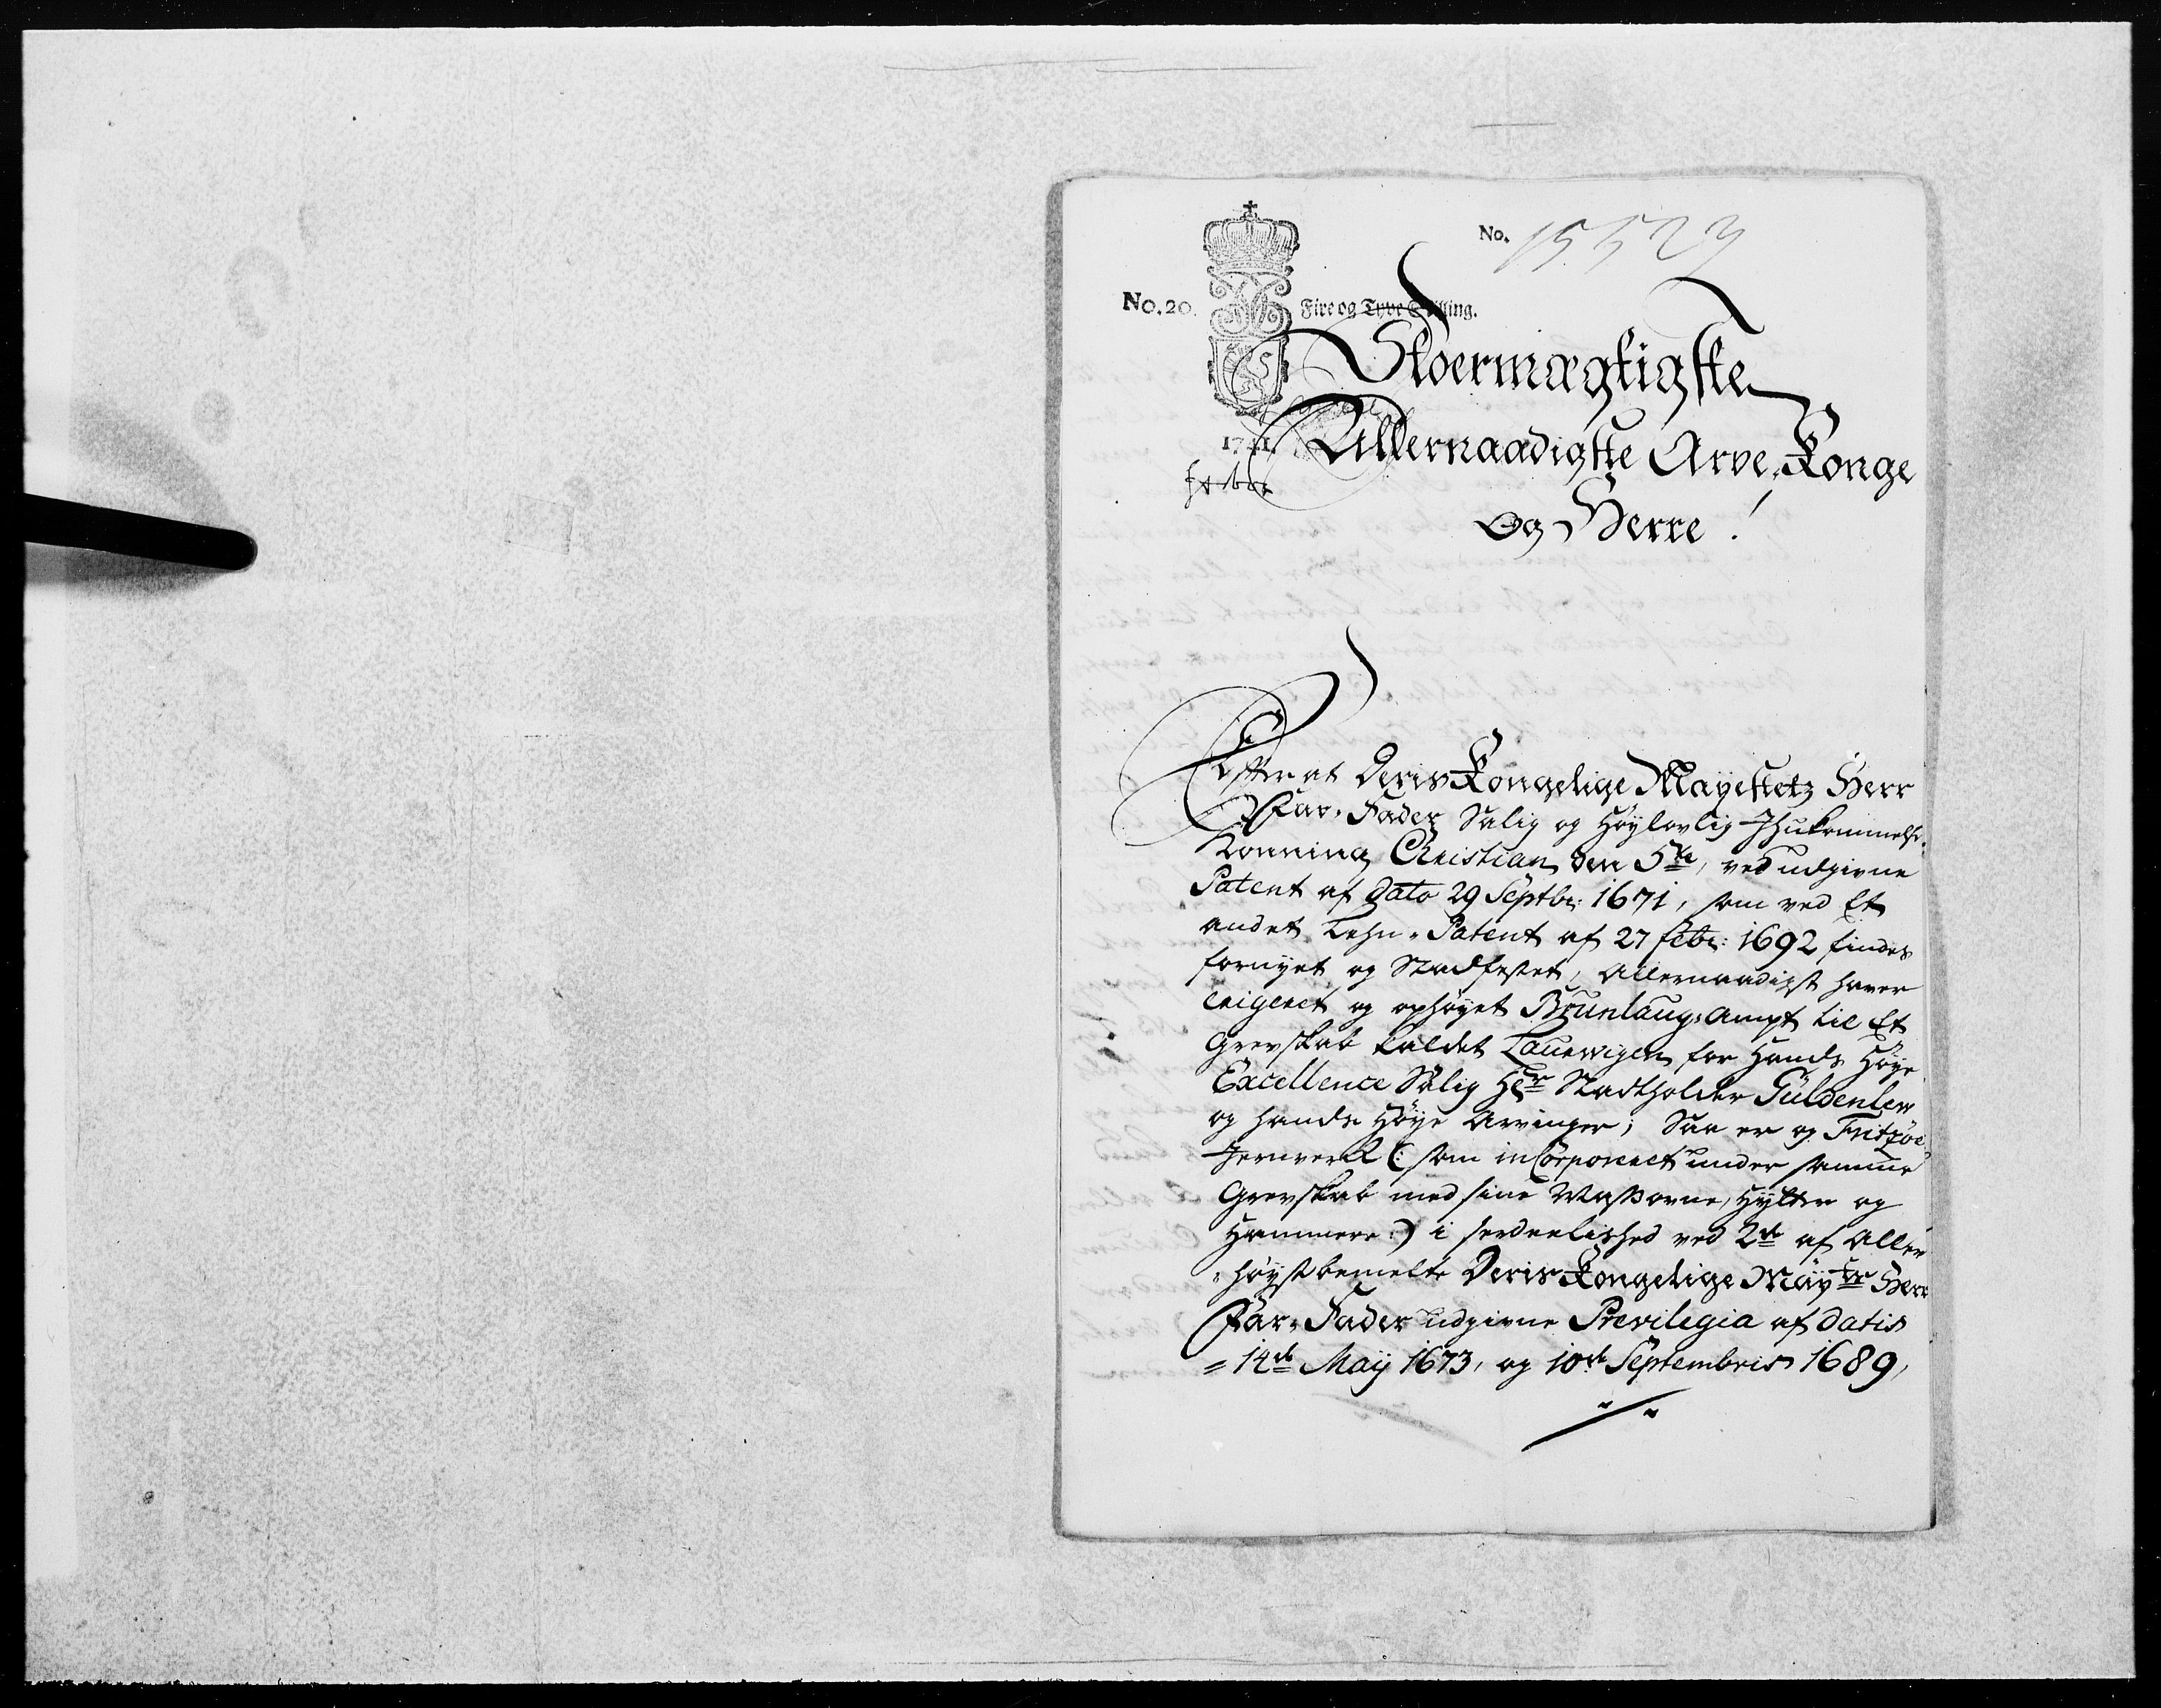 No. 15523
No. 20. Fire og Tyve Skilling.
Stoermægtigste
1741. Allernaadigste Arve-Konge
Og Herre!
Efter at Deris Kongelige Mayestetz Herr
Far-Fader Salig og Høylovlig Ihukommelse
Konning Christian den 5te, ved udgivne
Patent af Dato 29 Septbr: 1671, som ved Et
andet Lehn-Patent af 27 febr: 1692 findes
fornyet og Stadfestet, Allernaadigst haver
erigeret og ophøyet Brunlaug-Ampt til Et
Grevskab kaldet Laurwigen for Hands Høye
Excellence Salig Hr Stadtholder Güldenlew
og hands Høye Arvinger; Saa er og Fritzøe
Jernverk (: som incorporeret under samme
Grevskab med sine Masovne, Hytter og
Hammere :) i serdeelished ved 2de af Aller
-høystbemelte Deris Kongelige Mayts Herr
Far-Fader udgivne Previlegia af datis
14de Maij 1673, og 10de Septembris 1689,